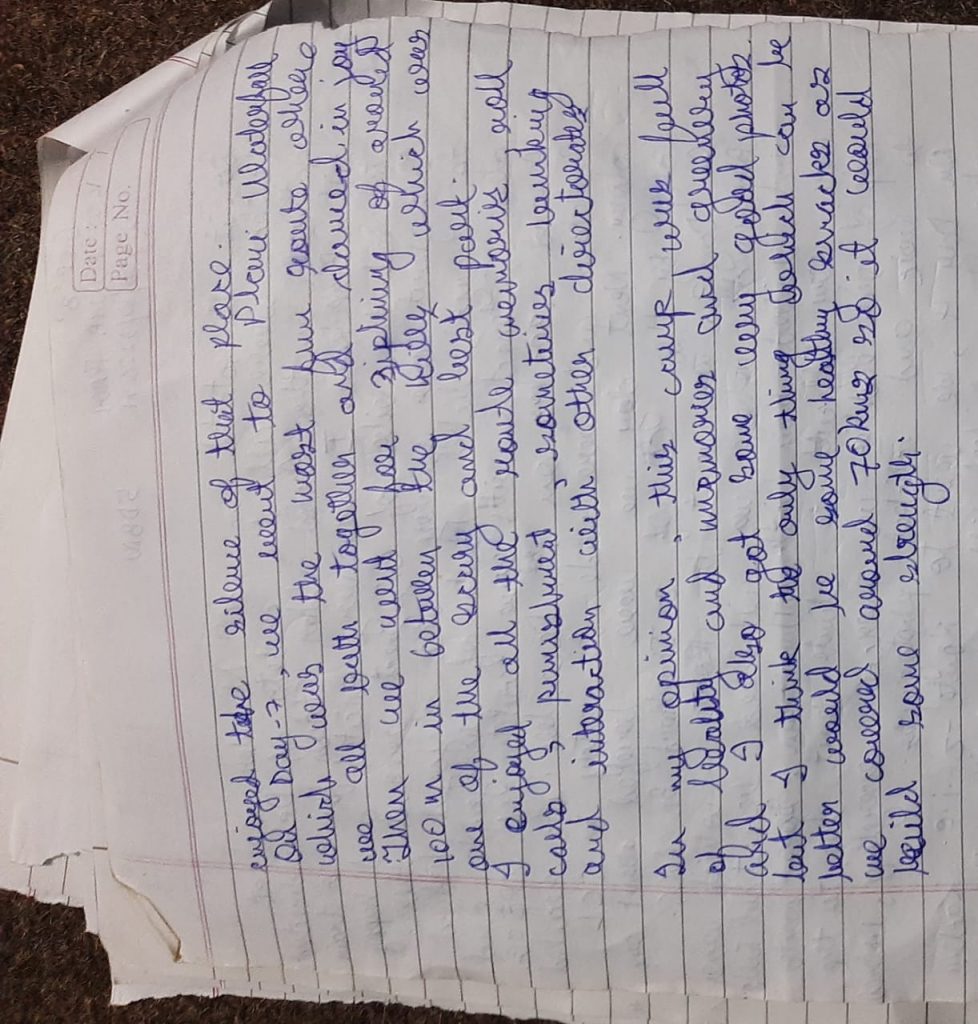 Date :
Page No.
enjoyed the silence of that place.
On Day-7, we went to Plani Waterfall
which was the most fun route where
we all bath together and danced in joy
Then we went for zipling of around
100m in between the hills which was
one of the scary and best part.
I enjoyed all the route memoris roll
calls, punishment, sometimes bunking
and interaction with other directorates
In my opinion, this camp was full
of and memories and greenery
and I also got some very good photos
but I think only thing which can be
better would be some healthy snacks as
we covered around 70kms so it would
build some strength.